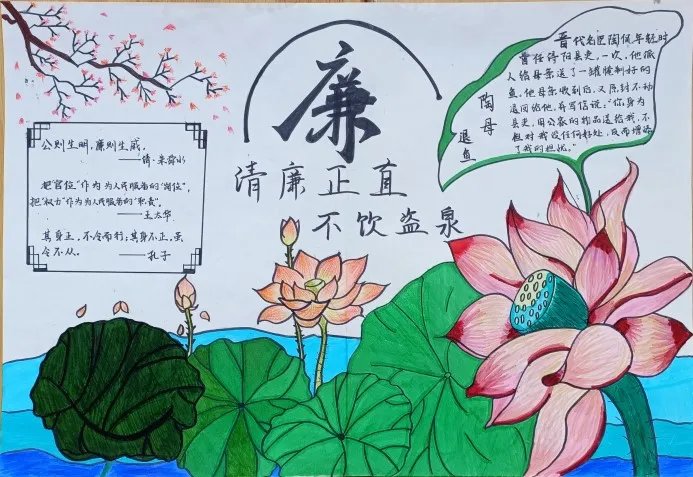 廉
清廉正直
不饮盗泉
公则生明，廉则生威。
——清·朱舜水
把"官位"作为为人民服务的"岗位"，
把"权力"作为为人民服务的"职责"。
——王太华
其身正，不令而行；其身不正，虽
令不从。 ——孔子
陶母
退鱼
晋代名臣陶侃年轻时
曾任浔阳县吏。一次，他派
人给母亲送了一罐腌制好的
鱼。他母亲收到后，又原封不动
退回给他，并写信说："你身为
县吏，用公家的物品送给我，不
但对我没任何好处，反而增添
了我的担忧。"